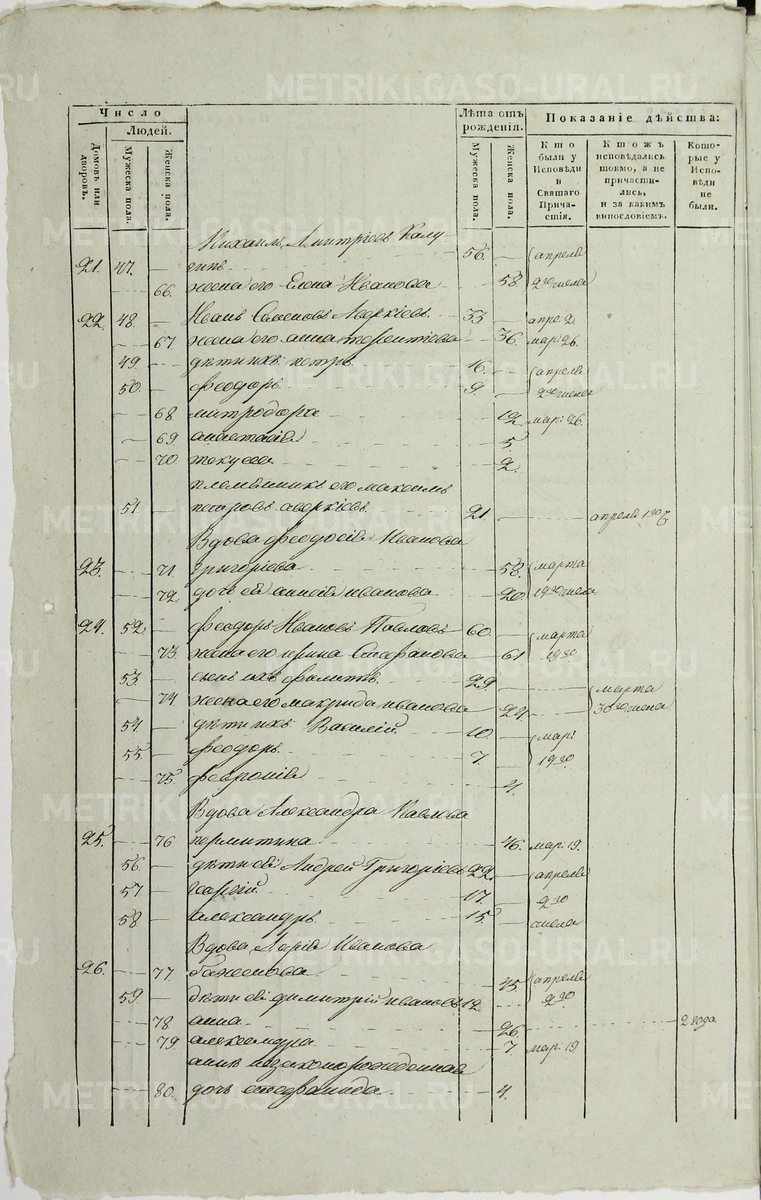 METRIKI.GASO-URAL.RU
Число
Людей.
Домовъ или дворовъ.
Мужеска пола.
Женска пола.
Лѣта отъ рожденія.
Мужеска пола.
Женска пола.
Показаніе дѣйства:
Кто были у Исповѣди и Святаго Причастія.
Ктожъ исповѣдались токмо, а не причастились, и за какимъ винословіемъ.
Которые у Исповѣди не были.
Михаилъ Дмитріевъ Калу
21. 47. гинъ 56. апреля
66. жена его Елена Иванова 58. 2го числа
22. 48. Иванъ Семеновъ Аверкіевъ 33 апре. 2.
67. жена его анна терентіева 36. мар. 26.
49. дѣти ихъ петръ апреля
50. феодоръ 9. 2го числа
68 митродора 12. мар. 26.
69 анастасія 5.
70. 2.
племянникъ его максимъ
51. петровъ аверкіевъ 21. апреля
Вдова феодосія Иванова
23. 71. Григорьева 58. марта
72. дочь ея анисія иванова 20. 19го числа
24. 52. феодоръ Ивановъ Павловъ 60. марта
73. жена его ирина Стефанова 61 19го
53. сынъ ихъ филиппъ 29 марта
74 жена его макрида иванова 24. 30го числа
54. дѣти ихъ Василій 10. мар:
55. феодоръ 7. 19го
75. февронія 4.
Вдова Александра Павлова
25. 76 46. мар: 19.
56. дѣти ея Андрей Григорьевъ 22. апреля
57. георгій 17. 2го
58. александръ 15. числа
Вдова Марія Иванова
26. 77. Баженова 45. апреля
59. дѣти ея димитрій ивановъ 12 2го
78 анна 26. 2 года
79. александра 7 мар. 19
анны незаконорожденная
80. дочь 4.